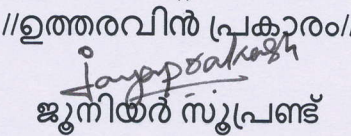 //ഉത്തരവിൻ പ്രകാരം/
jayaprakash
ജൂനിയർ സൂപ്രണ്ട്